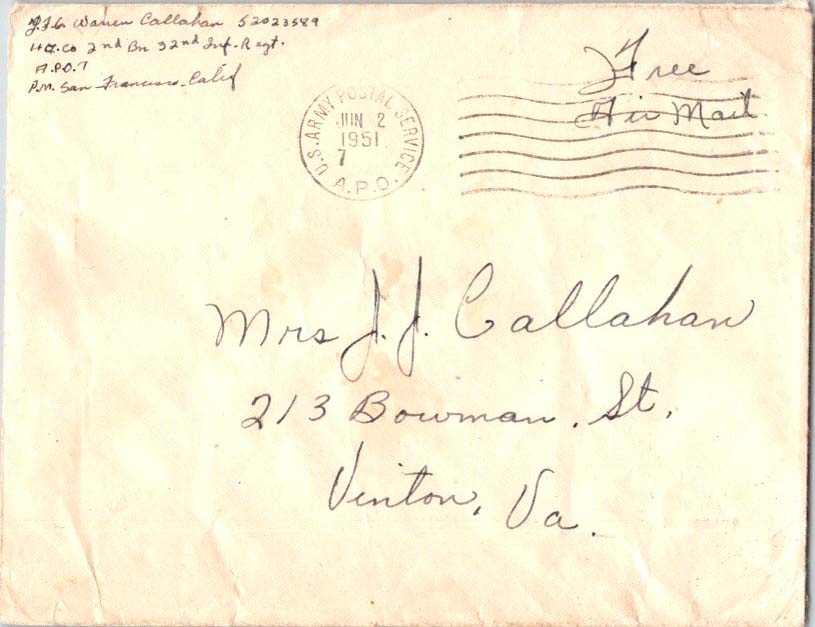 Warren Callahan 52023589
Hq. Co 2nd Bn 32nd Inf. Regt.
A.P.O. 7
P.M. San Francisco, Calif
Free
Air Mail
U.S. ARMY POSTAL SERVICE
JUN 2
1951
7
A.P.O.
Mrs J. J. Callahan
213 Bowman. St.
Vinton, Va.